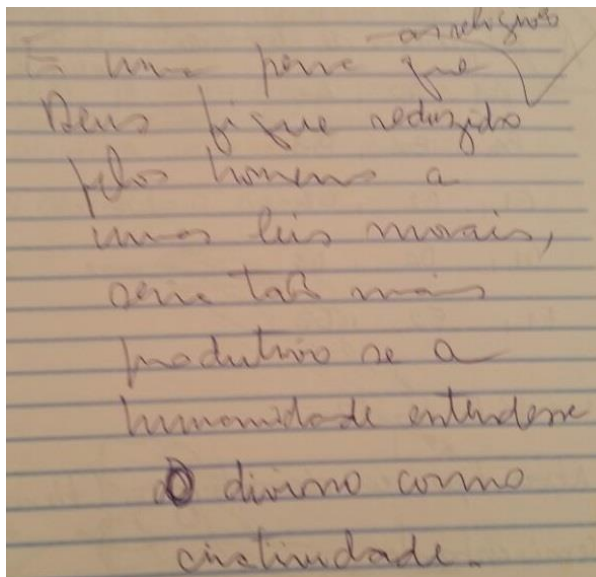 as religiões
É uma pena que
Deus fique reduzido
pelos homens a
umas leis morais,
seria tão mais
produtivo se a
humanidade entendesse
O divino como
criatividade.